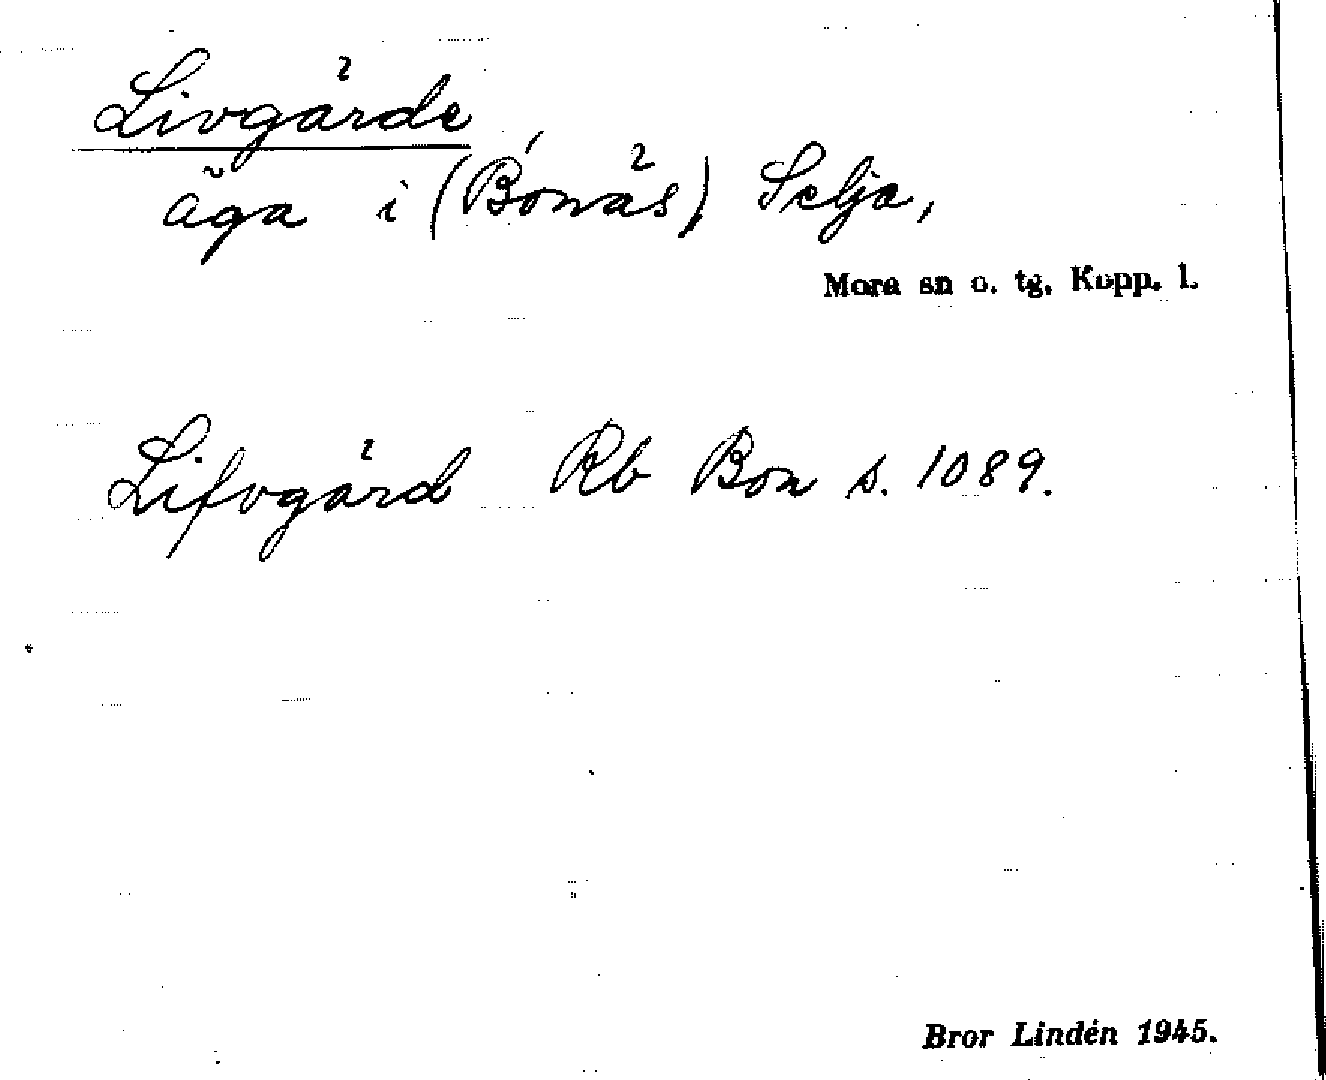 Livgärde
äga i (Bonäs) Selja,
Mora sn o. tg. Kopp. l.
Lifvgärd Rb Bon s. 1089.
Bror Lindén 1945.